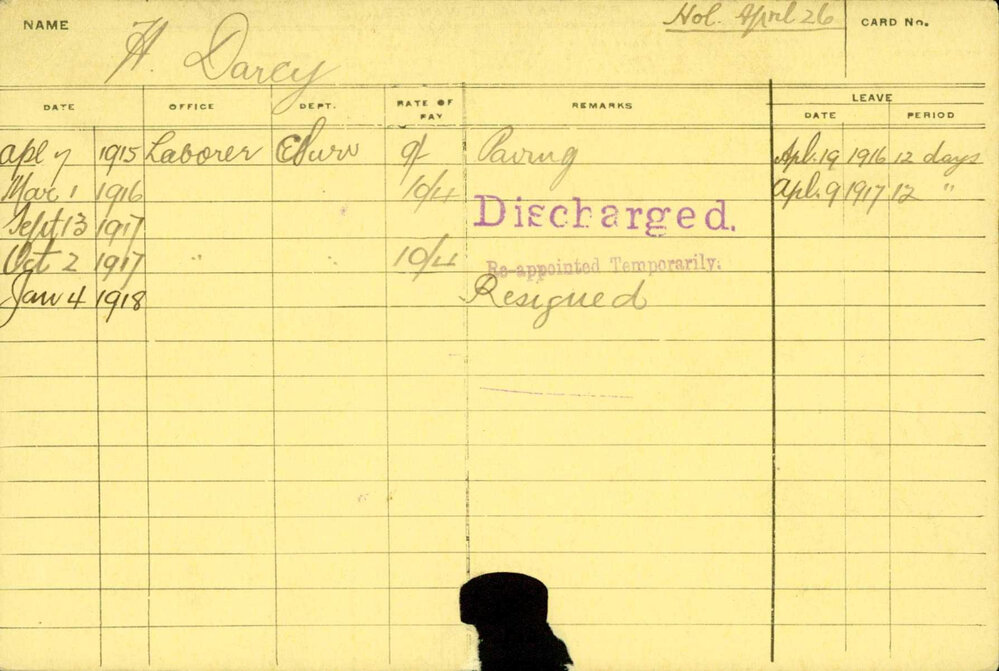 NAME H. Darcy Hol. April 26 CARD No.
DATE OFFICE DEPT. RATE OF PAY REMARKS LEAVE DATE PERIOD
Apl 7 1915 Laborer 9/- Paving Apl. 19 1916 12 days
Mar 1 1916 10/4 Apl. 9 1917 12 "
Sept 13 1917 Discharged.
Oct 2 1917 " " 10/4 Re-appointed Temporarily.
Jan 4 1918 Resigned